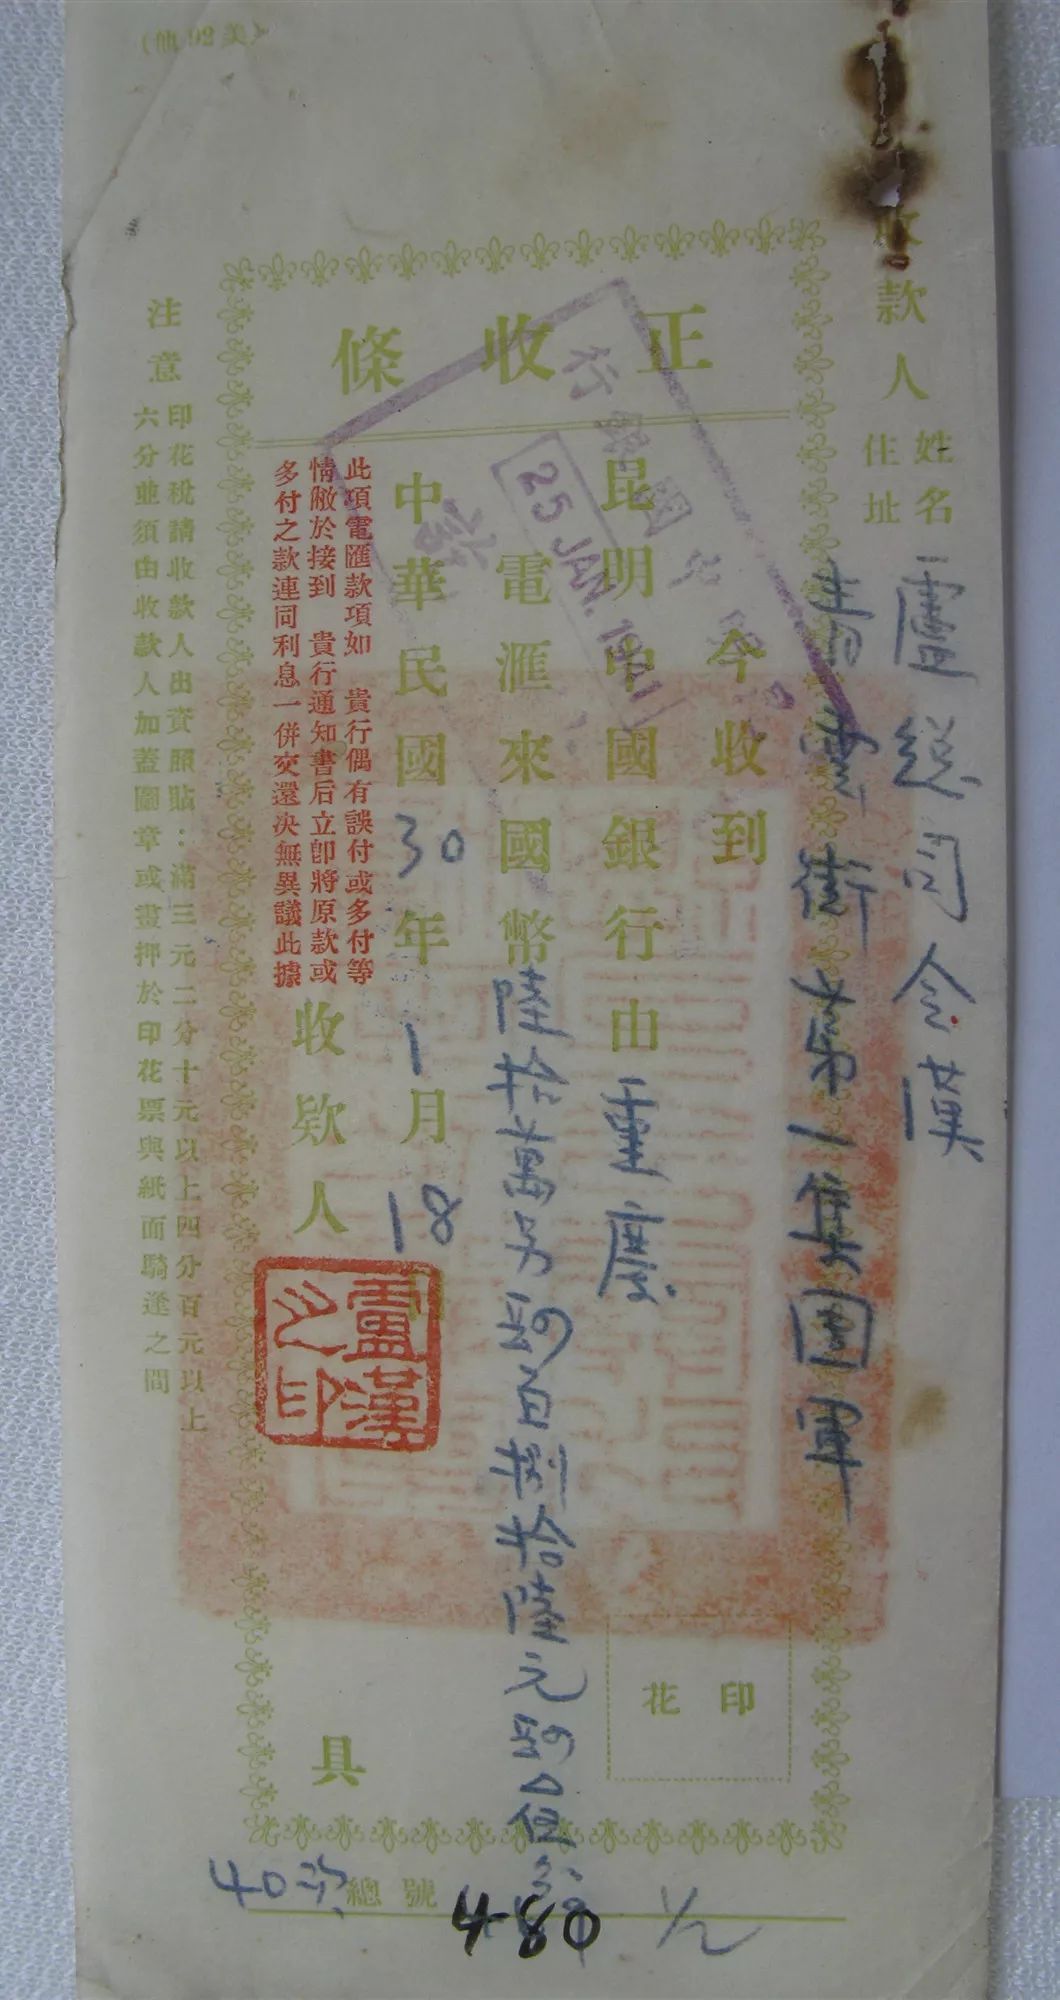 收款人
姓名 盧總司令漢
住址 青雲街第一集團軍
正收條
今收到
昆明中國銀行由重慶
電滙來國幣陸拾萬另肆百捌拾陸元
中華民國30年1月18日
此項電匯款項如 貴行偶有誤付或多付等
情敝於接到 貴行通知書后立卽將原款或
多付之款連同利息一併交還决無異議此據
收欵人
盧漢之印
具
印花
25 JAN. 1941
注意
印花稅請收款人出資照貼：滿三元二分十元以上四分百元以上
六分並須由收款人加蓋圖章或畫押於印花票與紙面騎逢之間
總號
480